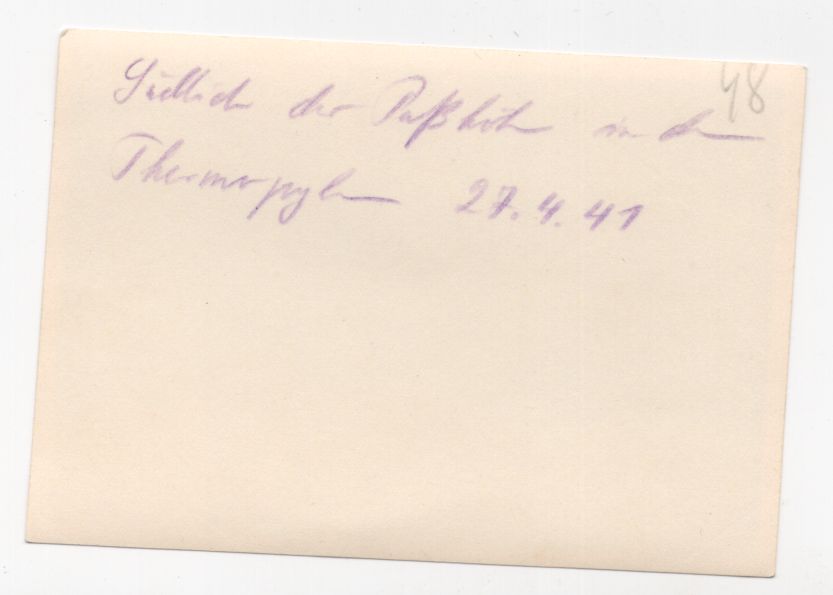 48
Südlich der Paßhöhe in den
Thermopylen 27.4.41